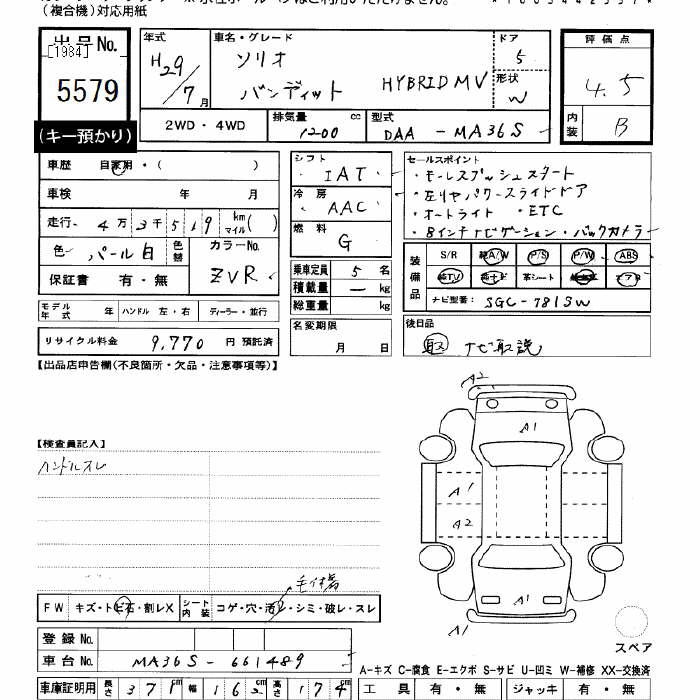 (複合機)対応用紙
出品No.
[1984]
5579
(キー預かり)
年式
H29/7月
車名・グレード
ソリオ
バンディット HYBRID MV
ドア
5
形状
W
評価点
4.5
内装
B
2WD・4WD
排気量 cc
1200
型式
DAA - MA36S
車歴 自家用・( )
車検 年 月
走行 4万3千519 km マイル( )
色 パール白
色替
カラーNo.
ZVR
保証書 有・無
シフト
IAT
冷房
AAC
燃料
G
乗車定員 5 名
積載量 — kg
総重量 kg
セールスポイント
・キーレスプッシュスタート
・左リヤパワースライドドア
・オートライト ・ETC
・8インチナビゲーション・バックカメラー
装備品
S/R 純A/W P/S P/W ABS
純TV 純ナビ 革シート エアB
ナビ型番: SGC-7813W
モデル年式 年 ハンドル 左・右 ディーラー・並行
名変期限
月 日
後日品
取 ナビ取説
リサイクル料金 9,770 円 預託済
【出品店申告欄(不良箇所・欠品・注意事項等)】
【検査員記入】
ハンドルスレ
A2
A1
A1
A2
A1
A1
スペア
毛付傷
FW キズ・トビ石・割レX シート内装 コゲ・穴・汚レ・シミ・破レ・スレ
登録No.
車台No. MA36S-661489
A-キズ C-腐食 E-エクボ S-サビ U-凹ミ W-補修 XX-交換済
車庫証明用 長さ 371 cm 幅 162 cm 高さ 174 cm
工具 有・無 ジャッキ 有・無